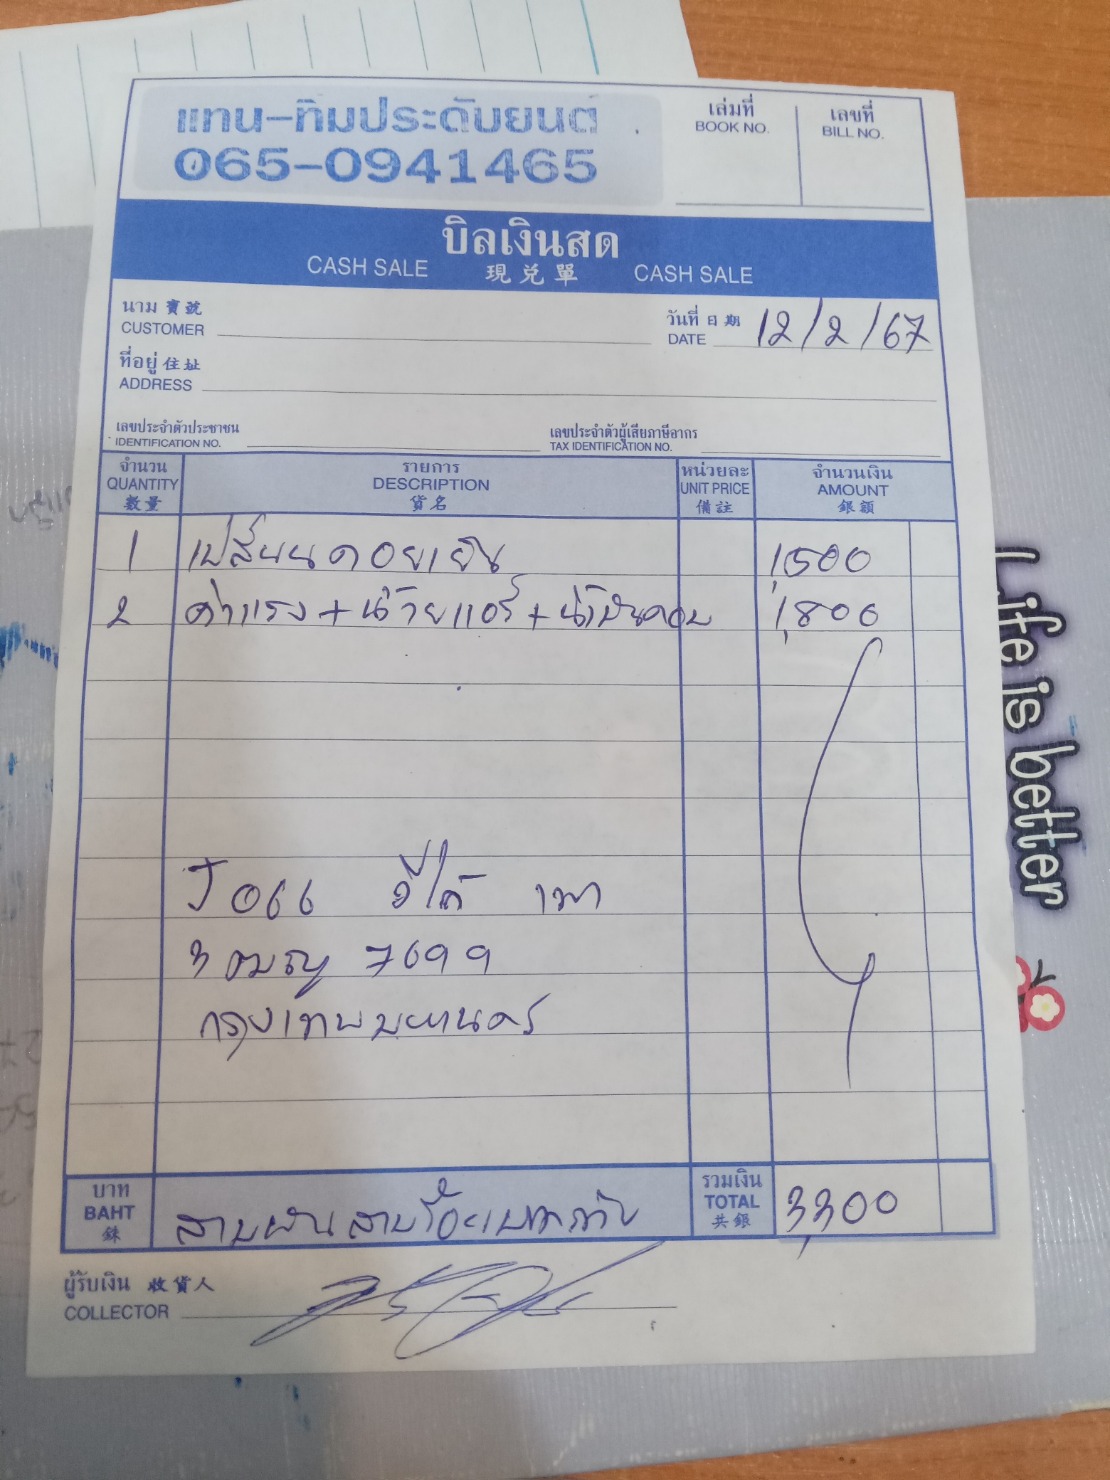 แทน-ทิมประดับยนต์
065-0941465
เล่มที่
BOOK NO.
เลขที่
BILL NO.
บิลเงินสด
CASH SALE 現兑單 CASH SALE
นาม 寶號
CUSTOMER
วันที่ 日期
DATE 12/2/67
ที่อยู่ 住址
ADDRESS
เลขประจำตัวประชาชน
IDENTIFICATION NO.
เลขประจำตัวผู้เสียภาษีอากร
TAX IDENTIFICATION NO.
จำนวน รายการ หน่วยละ จำนวนเงิน
QUANTITY DESCRIPTION UNIT PRICE AMOUNT
數量 貨名 備註 銀額
1 เปลี่ยนคอยเย็น 1,500
2 ค่าแรง + น้ำยาแอร์ + น้ำมันคอม 1,800
J 066 อีซูซุ
7699
กรุงเทพมหานคร
บาท
BAHT
銖
สามพันสามร้อยบาทถ้วน
รวมเงิน
TOTAL
共銀
3,300
ผู้รับเงิน 收貨人
COLLECTOR
Life is better